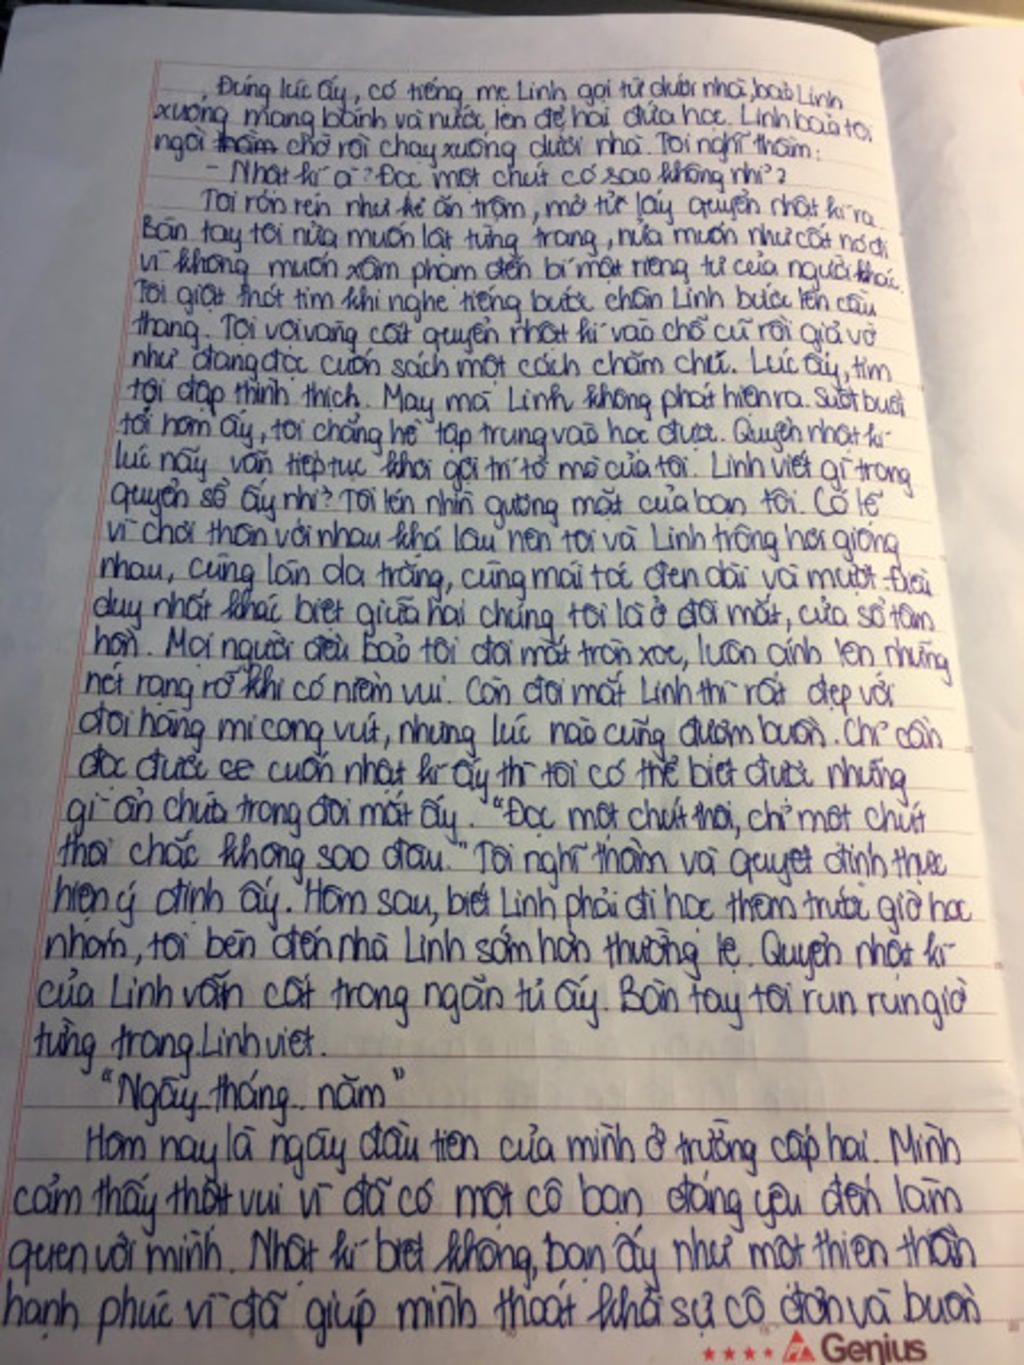 Đúng lúc ấy, có tiếng mẹ Linh gọi từ dưới nhà, bảo Linh
xuống mang bánh và nước lên để hai đứa học. Linh bảo tôi
ngồi chờ rồi chạy xuống dưới nhà. Tôi nghĩ thầm:
- Nhật kí à? Đọc một chút có sao không nhỉ?
Tôi rón rén như kẻ ăn trộm, mở tủ lấy quyển nhật kí ra.
Bàn tay tôi nửa muốn lật từng trang, nửa muốn như cất nó đi
vì không muốn xâm phạm đến bí mật riêng tư của người khác.
Tôi giật thót tim khi nghe tiếng bước chân Linh bước lên cầu
thang. Tôi vội vàng cất quyển nhật kí vào chỗ cũ rồi giả vờ
như đang đọc cuốn sách một cách chăm chú. Lúc ấy, tim
tôi đập thình thịch. May mà Linh không phát hiện ra. Suốt buổi
tối hôm ấy, tôi chẳng hề tập trung vào học được. Quyển nhật kí
lúc nãy vẫn tiếp tục khơi gợi trí tò mò của tôi. Linh viết gì trong
quyển sổ ấy nhỉ? Tôi lén nhìn gương mặt của bạn tôi. Có lẽ
vì chơi thân với nhau khá lâu nên tôi và Linh trông hơi giống
nhau, cùng làn da trắng, cùng mái tóc đen dài và mượt. Điều
duy nhất khác biệt giữa hai chúng tôi là ở đôi mắt, cửa sổ tâm
hồn. Mọi người đều bảo tôi đôi mắt tròn xoe, luôn ánh lên những
nét rạng rỡ khi có niềm vui. Còn đôi mắt Linh thì rất đẹp với
đôi hàng mi cong vút, nhưng lúc nào cũng đượm buồn. Chỉ cần
đọc được cuốn nhật kí ấy thì tôi có thể biết được những
gì ẩn chứa trong đôi mắt ấy. "Đọc một chút thôi, chỉ một chút
thôi chắc không sao đâu." Tôi nghĩ thầm và quyết định thực
hiện ý định ấy. Hôm sau, biết Linh phải đi học thêm trước giờ học
nhóm, tôi bèn đến nhà Linh sớm hơn thường lệ. Quyển nhật kí
của Linh vẫn cất trong ngăn tủ ấy. Bàn tay tôi run run giở
từng trang Linh viết.
"Ngày..tháng.. năm"
Hôm nay là ngày đầu tiên của mình ở trường cấp hai. Mình
cảm thấy thật vui vì đã có một cô bạn đáng yêu đến làm
quen với mình. Nhật kí biết không, bạn ấy như một thiên thần
hạnh phúc vì đã giúp mình thoát khỏi sự cô đơn và buồn
Genius